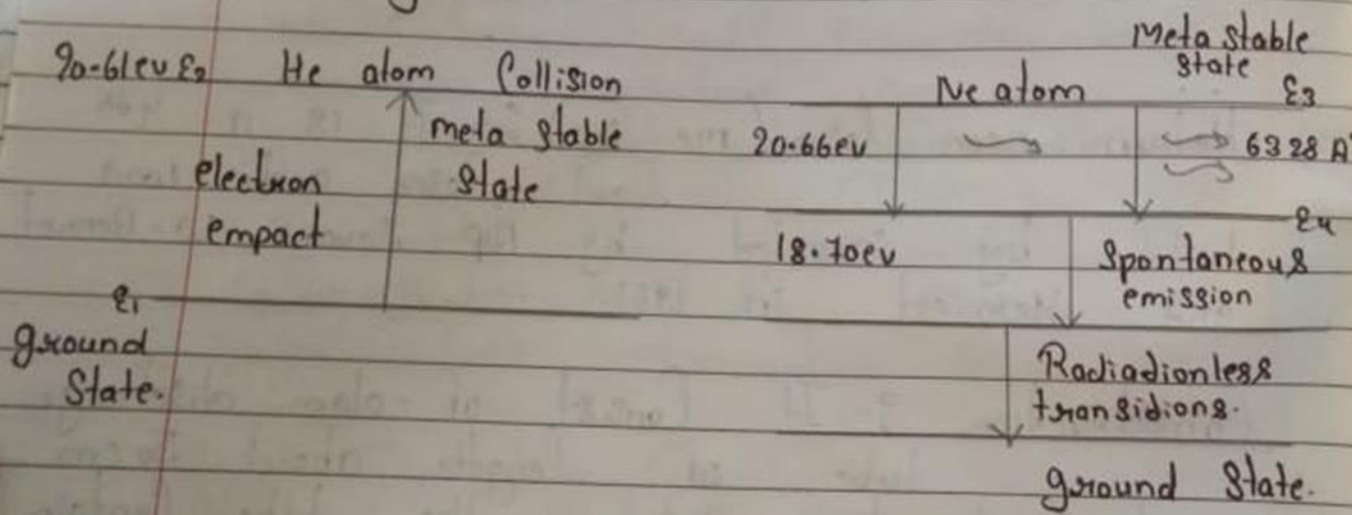 Meta stable
state
20.61ev E2 He atom Collision Ne atom E3
meta stable 20.66ev 6328 A°
electron state
empact E4
18.70ev Spontaneous
emission
E1
ground Radiadionless
State. transidions.
ground State.